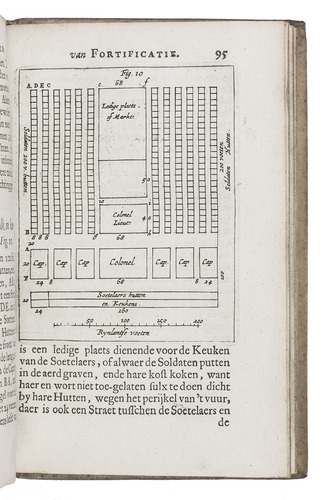 van FORTIFICATIE. 95
Fig. 10
68
A D E C e f
Ledige plaets
of Marckt.
Soldaten 200 v. hutten
200 voeten
Soldaten Hutten
50
20
40
Colonel
Lieut.
B 8 8 8 68
20
Cap. Cap Cap Colonel Cap Cap Cap
B 24 8 68 8 24
20 Soetelaers hutten
en Keukens.
24 260
50 100 150 200
Rynlandse voeten
is een ledige plaets dienende voor de Keuken
van de Soetelaers, of alwaer de Soldaten putten
in de aerd graven, ende hare kost koken, want
haer en wort niet toe-gelaten sulx te doen dicht
by hare Hutten, wegen het perijkel van 't vuur,
daer is ook een Straet tusschen de Soetelaers en
de